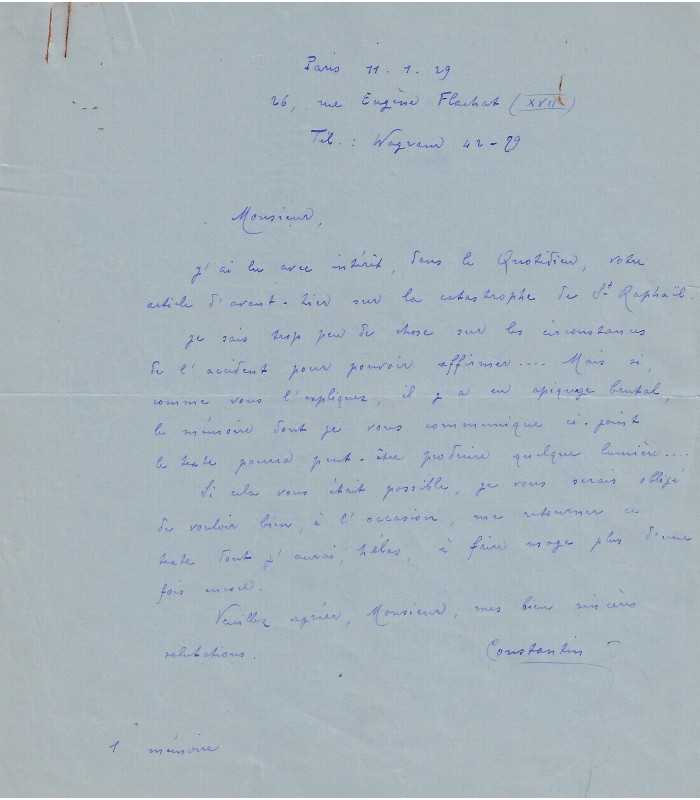 Paris 11.1.29
26, rue Eugène Flachat (XVII)
Tél. : Wagram 42-29
Monsieur,
J'ai lu avec intérêt, dans le Quotidien, votre
article d'avant-hier sur la catastrophe de St Raphaël.
Je sais trop peu de chose sur les circonstances
de l'accident pour pouvoir affirmer.... Mais si,
comme vous l'expliquez, il y a eu apiquage brutal,
le mémoire dont je vous communique ci-joint
le texte pourra peut-être produire quelque lumière....
Si cela vous était possible, je vous serais obligé
de vouloir bien, à l'occasion, me retourner ce
texte dont j'aurai, hélas, à faire usage plus d'une
fois encore.
Veuillez agréer, Monsieur, mes bien sincères
salutations.
Constantin
1 mémoire